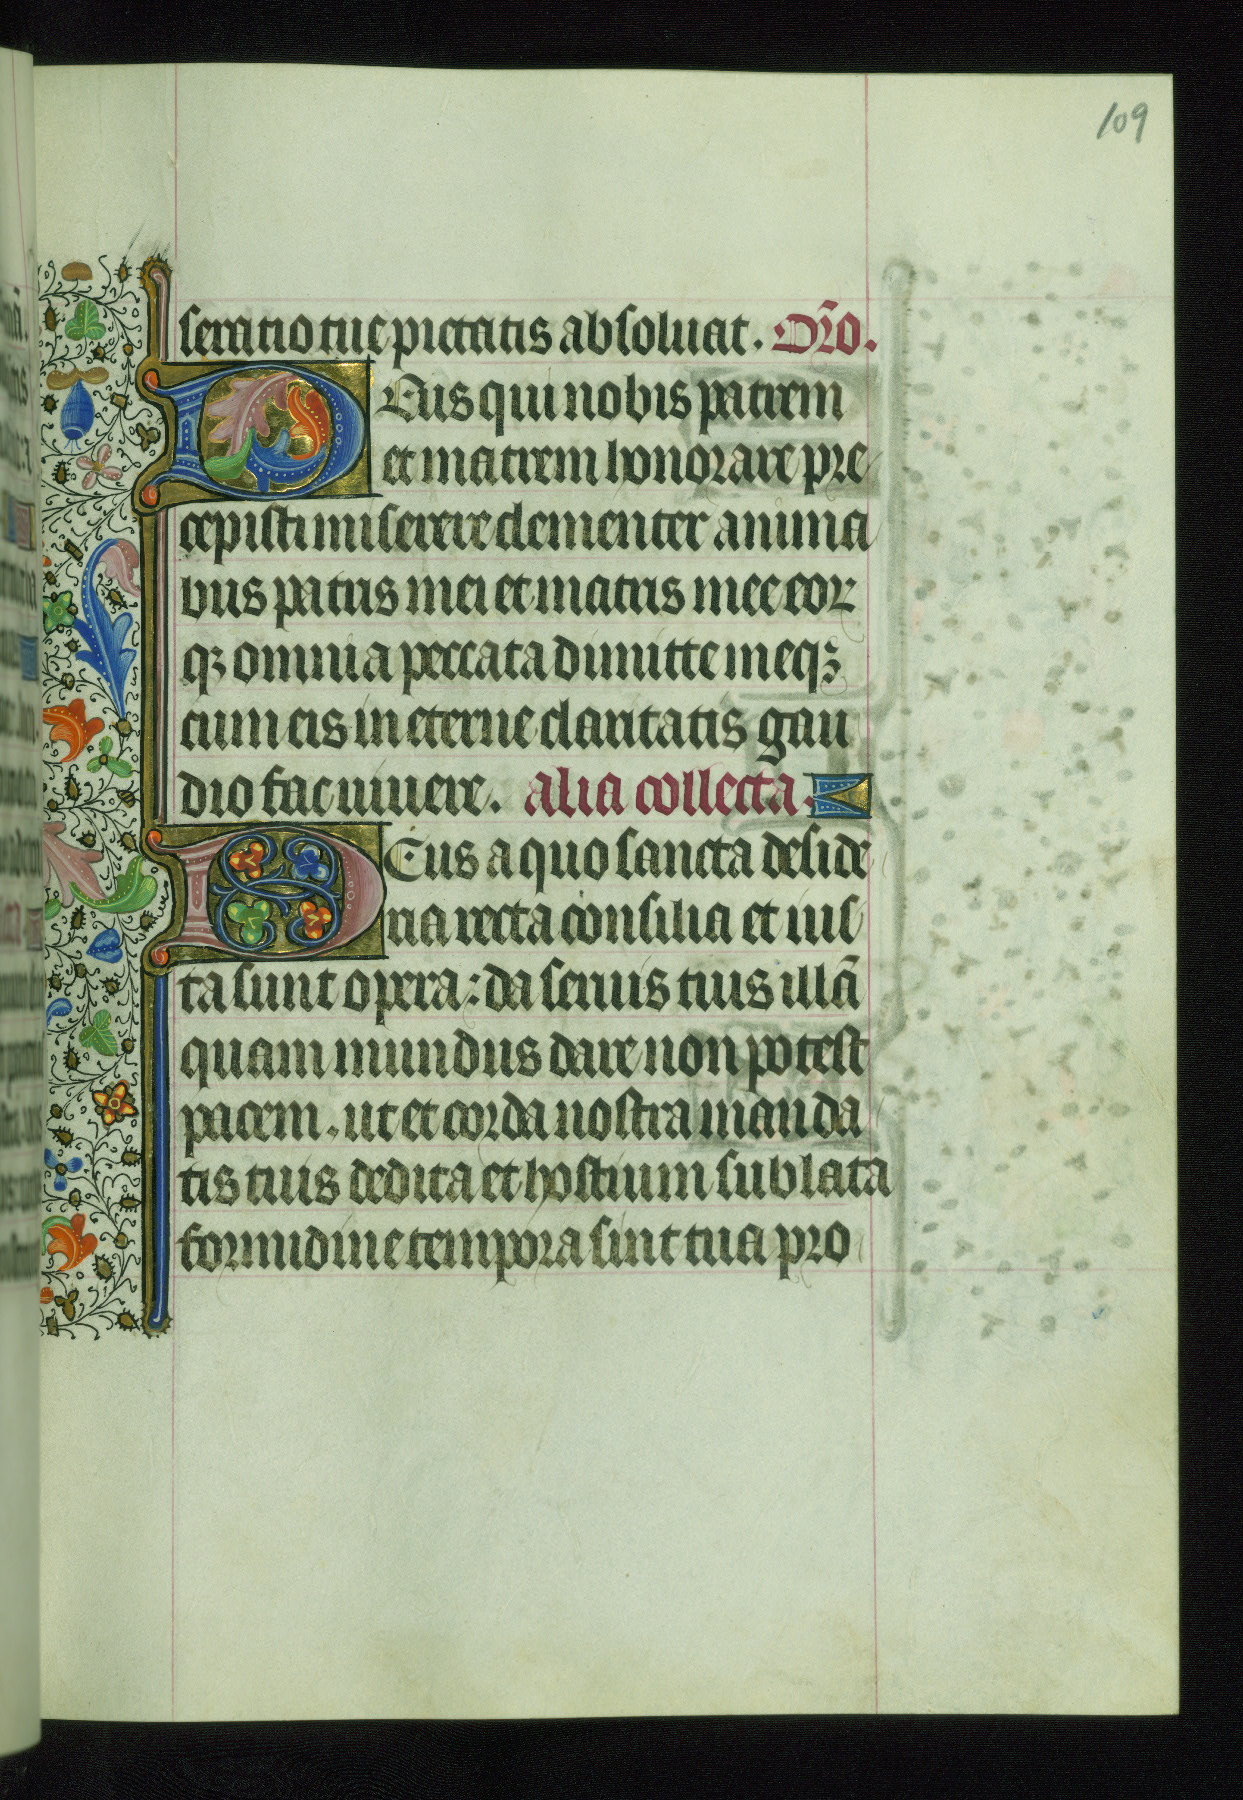 109
seratio tue pietatis absoluat. Or̄o.
Deus qui nobis patrem
et matrem honorare pre
cepisti miserere clementer anima
bus patris mei et matris mee eor
qꝫ omnia peccata dimitte meqꝫ
cum eis in eterne claritatis gau
dio fac uiuere. alia collecta.
Deus a quo sancta deside
ria recta consilia et ius
ta sunt opera: da seruis tuis illā
quam mundus dare non potest
pacem. ut et corda nostra manda
tis tuis dedita et hostium sublata
formidine tempora sint tua pro